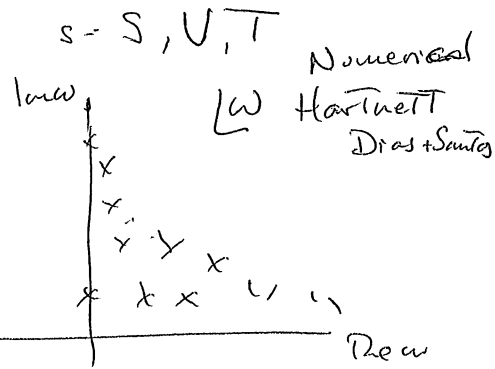 s = S, V, T
Numerical
Im ω
LW HarTneTT
Dias + Santos
Re ω